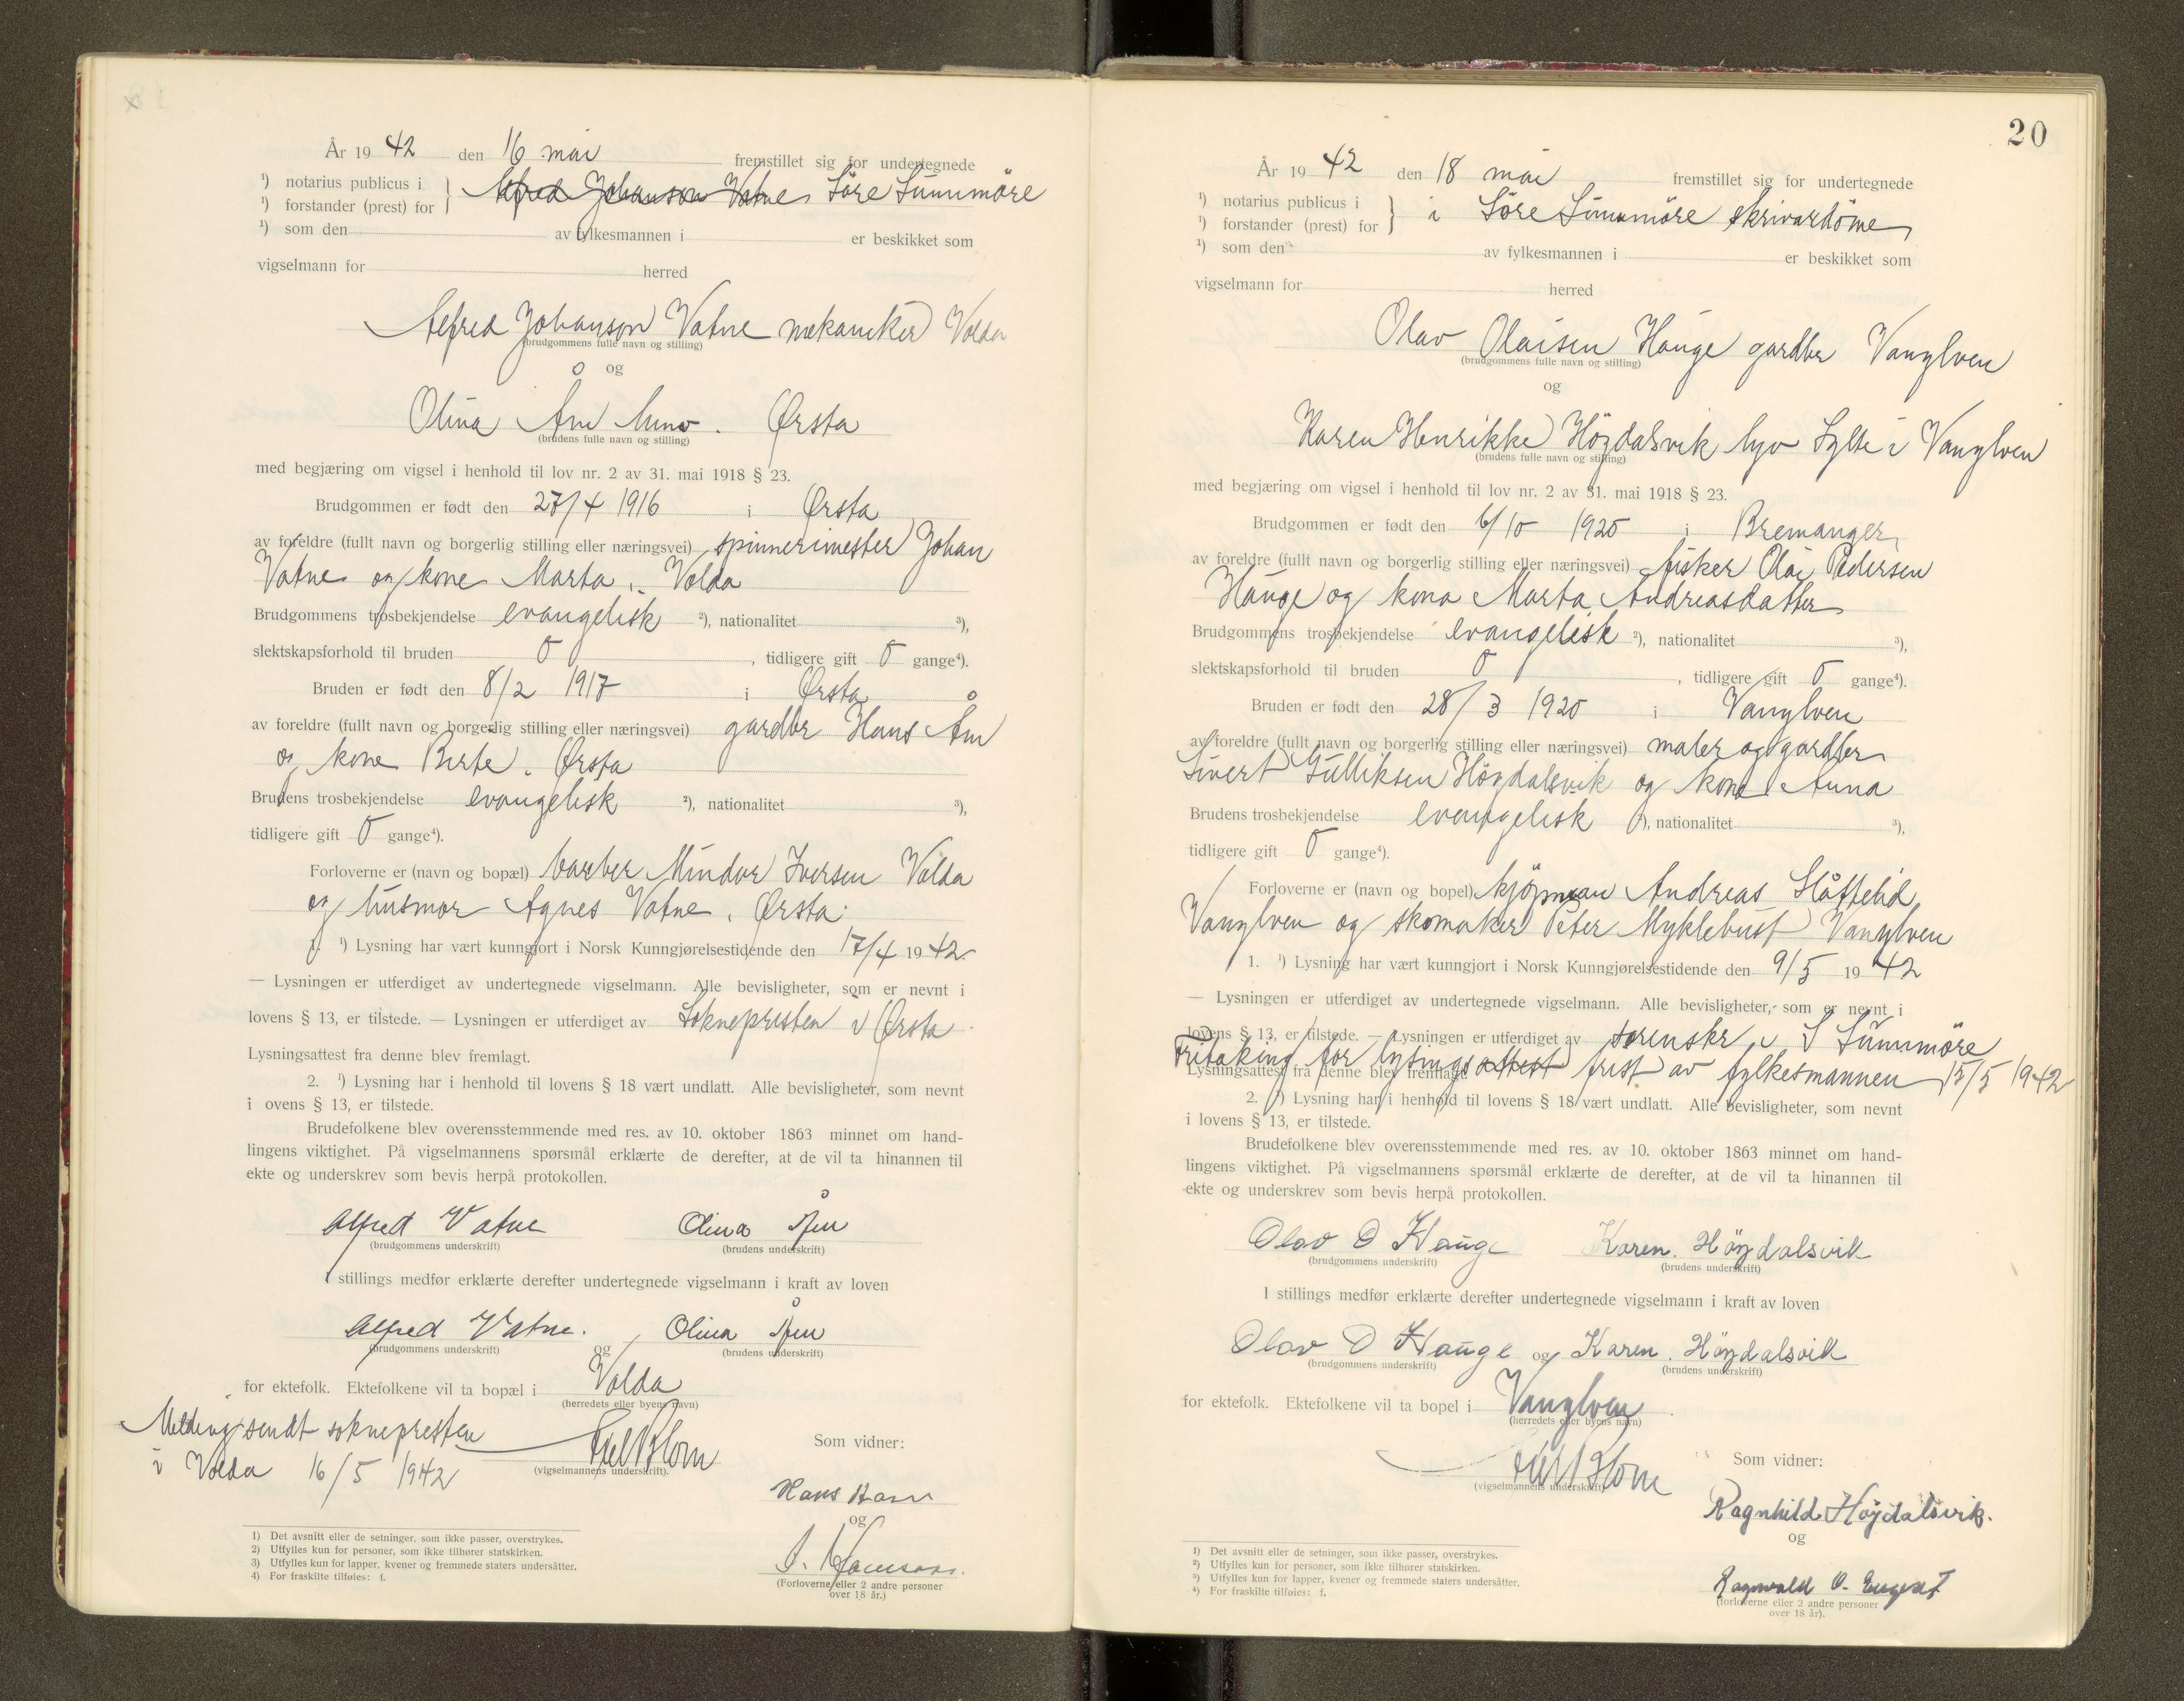 År 19 42 den 16 mai fremstillet sig for undertegnede
¹) notarius publicus i
¹) forstander (prest) for } Alfred Johanson Vatne Söre Sunnmöre
¹) som den av fylkesmannen i er beskikket som
vigselmann for herred
Alfred Johanson Vatne mekaniker Volda
(brudgommens fulle navn og stilling)
og
Olina Åm Ørsta
(brudens fulle navn og stilling)
med begjæring om vigsel i henhold til lov nr. 2 av 31. mai 1918 § 23.
Brudgommen er født den 27/4 1916 i Ørsta
av foreldre (fullt navn og borgerlig stilling eller næringsvei) spinnerimester Johan
Vatne og kone Marta, Volda
Brudgommens trosbekjendelse evangelisk ²), nationalitet ³),
slektskapsforhold til bruden 0, tidligere gift 0 gange⁴).
Bruden er født den 8/2 1917 i Ørsta
av foreldre (fullt navn og borgerlig stilling eller næringsvei) gardbr Hans Åm
og kone Berte, Ørsta
Brudens trosbekjendelse evangelisk ²), nationalitet ³),
tidligere gift 0 gange⁴).
Forloverne er (navn og bopæl) barber Mindor Iversen Volda
og husmor Agnes Vatne, Ørsta
1. ¹) Lysning har vært kunngjort i Norsk Kunngjørelsestidende den 17/4 19 42.
— Lysningen er utferdiget av undertegnede vigselmann. Alle bevisligheter, som er nevnt i
lovens § 13, er tilstede. — Lysningen er utferdiget av Soknepresten i Ørsta
Lysningsattest fra denne blev fremlagt.
2. ¹) Lysning har i henhold til lovens § 18 vært undlatt. Alle bevisligheter, som nevnt
i ovens § 13, er tilstede.
Brudefolkene blev overensstemmende med res. av 10. oktober 1863 minnet om hand-
lingens viktighet. På vigselmannens spørsmål erklærte de derefter, at de vil ta hinannen til
ekte og underskrev som bevis herpå protokollen.
Alfred Vatne Olina Åm
(brudgommens underskrift) (brudens underskrift)
I stillings medfør erklærte derefter undertegnede vigselmann i kraft av loven
Alfred Vatne. og Olina Åm
(brudgommens underskrift) (brudens underskrift)
for ektefolk. Ektefolkene vil ta bopæl i Volda
(herredets eller byens navn)
Melding sendt soknepresten
i Volda 16/5 1942
Blom
(vigselmannens underskrift).
Som vidner:
Hans
og
(Forloverne eller 2 andre personer
over 18 år.)
1) Det avsnitt eller de setninger, som ikke passer, overstrykes.
2) Utfylles kun for personer, som ikke tilhører statskirken.
3) Utfylles kun for lapper, kvener og fremmede staters undersåtter.
4) For fraskilte tilføies: f.
20
År 19 42 den 18 mai fremstillet sig for undertegnede
¹) notarius publicus i
¹) forstander (prest) for } i Söre Sunnmöre skrivardöme
¹) som den av fylkesmannen i er beskikket som
vigselmann for herred
Olav Olaisen Hauge gardbr Vanylven
(brudgommens fulle navn og stilling)
og
Karen Henrikke Höydalsvik Sylte i Vanylven
(brudens fulle navn og stilling)
med begjæring om vigsel i henhold til lov nr. 2 av 31. mai 1918 § 23.
Brudgommen er født den 6/10 1920 i Bremanger
av foreldre (fullt navn og borgerlig stilling eller næringsvei) fisker Olai Pedersen
Hauge og kona Marta Andreasdatter
Brudgommens trosbekjendelse evangelisk ²), nationalitet ³),
slektskapsforhold til bruden 0, tidligere gift 0 gange⁴).
Bruden er født den 28/3 1920 i Vanylven
av foreldre (fullt navn og borgerlig stilling eller næringsvei) maler og gardbr
Sivert Gulliksen Höydalsvik og kona Anna
Brudens trosbekjendelse evangelisk ²), nationalitet ³),
tidligere gift 0 gange⁴).
Forloverne er (navn og bopel) kjöpmann Andreas Slåttelid
Vanylven og skomaker Peter Myklebust Vanylven
1. ¹) Lysning har vært kunngjort i Norsk Kunngjørelsestidende den 9/5 19 42
— Lysningen er utferdiget av undertegnede vigselmann. Alle bevisligheter, som er nevnt i
lovens § 13, er tilstede. — Lysningen er utferdiget av sorenskr. i S Sunnmöre
Fritaking for lysingsattest frist av fylkesmannen 15/5 1942
Lysningsattest fra denne blev fremlagt.
2. ¹) Lysning har i henhold til lovens § 18 vært undlatt. Alle bevisligheter, som nevnt
i lovens § 13, er tilstede.
Brudefolkene blev overensstemmende med res. av 10. oktober 1863 minnet om hand-
lingens viktighet. På vigselmannens spørsmål erklærte de derefter, at de vil ta hinannen til
ekte og underskrev som bevis herpå protokollen.
Olav O Hauge Karen. Höydalsvik
(brudgommens underskrift) (brudens underskrift)
I stillings medfør erklærte derefter undertegnede vigselmann i kraft av loven
Olav O Hauge og Karen. Höydalsvik
(brudgommens underskrift) (brudens underskrift)
for ektefolk. Ektefolkene vil ta bopel i Vanylven
(herredets eller byens navn)
Blom
(vigselmannens underskrift)
Som vidner:
Ragnhild Höydalsvik.
og
Ragnvald O.
(forloverne eller 2 andre personer
over 18 år).
¹) Det avsnitt eller de setninger, som ikke passer, overstrykes.
²) Utfylles kun for personer, som ikke tilhører statskirken.
³) Utfylles kun for lapper, kvener og fremmede staters undersåtter.
⁴) For fraskilte tilføies: f.